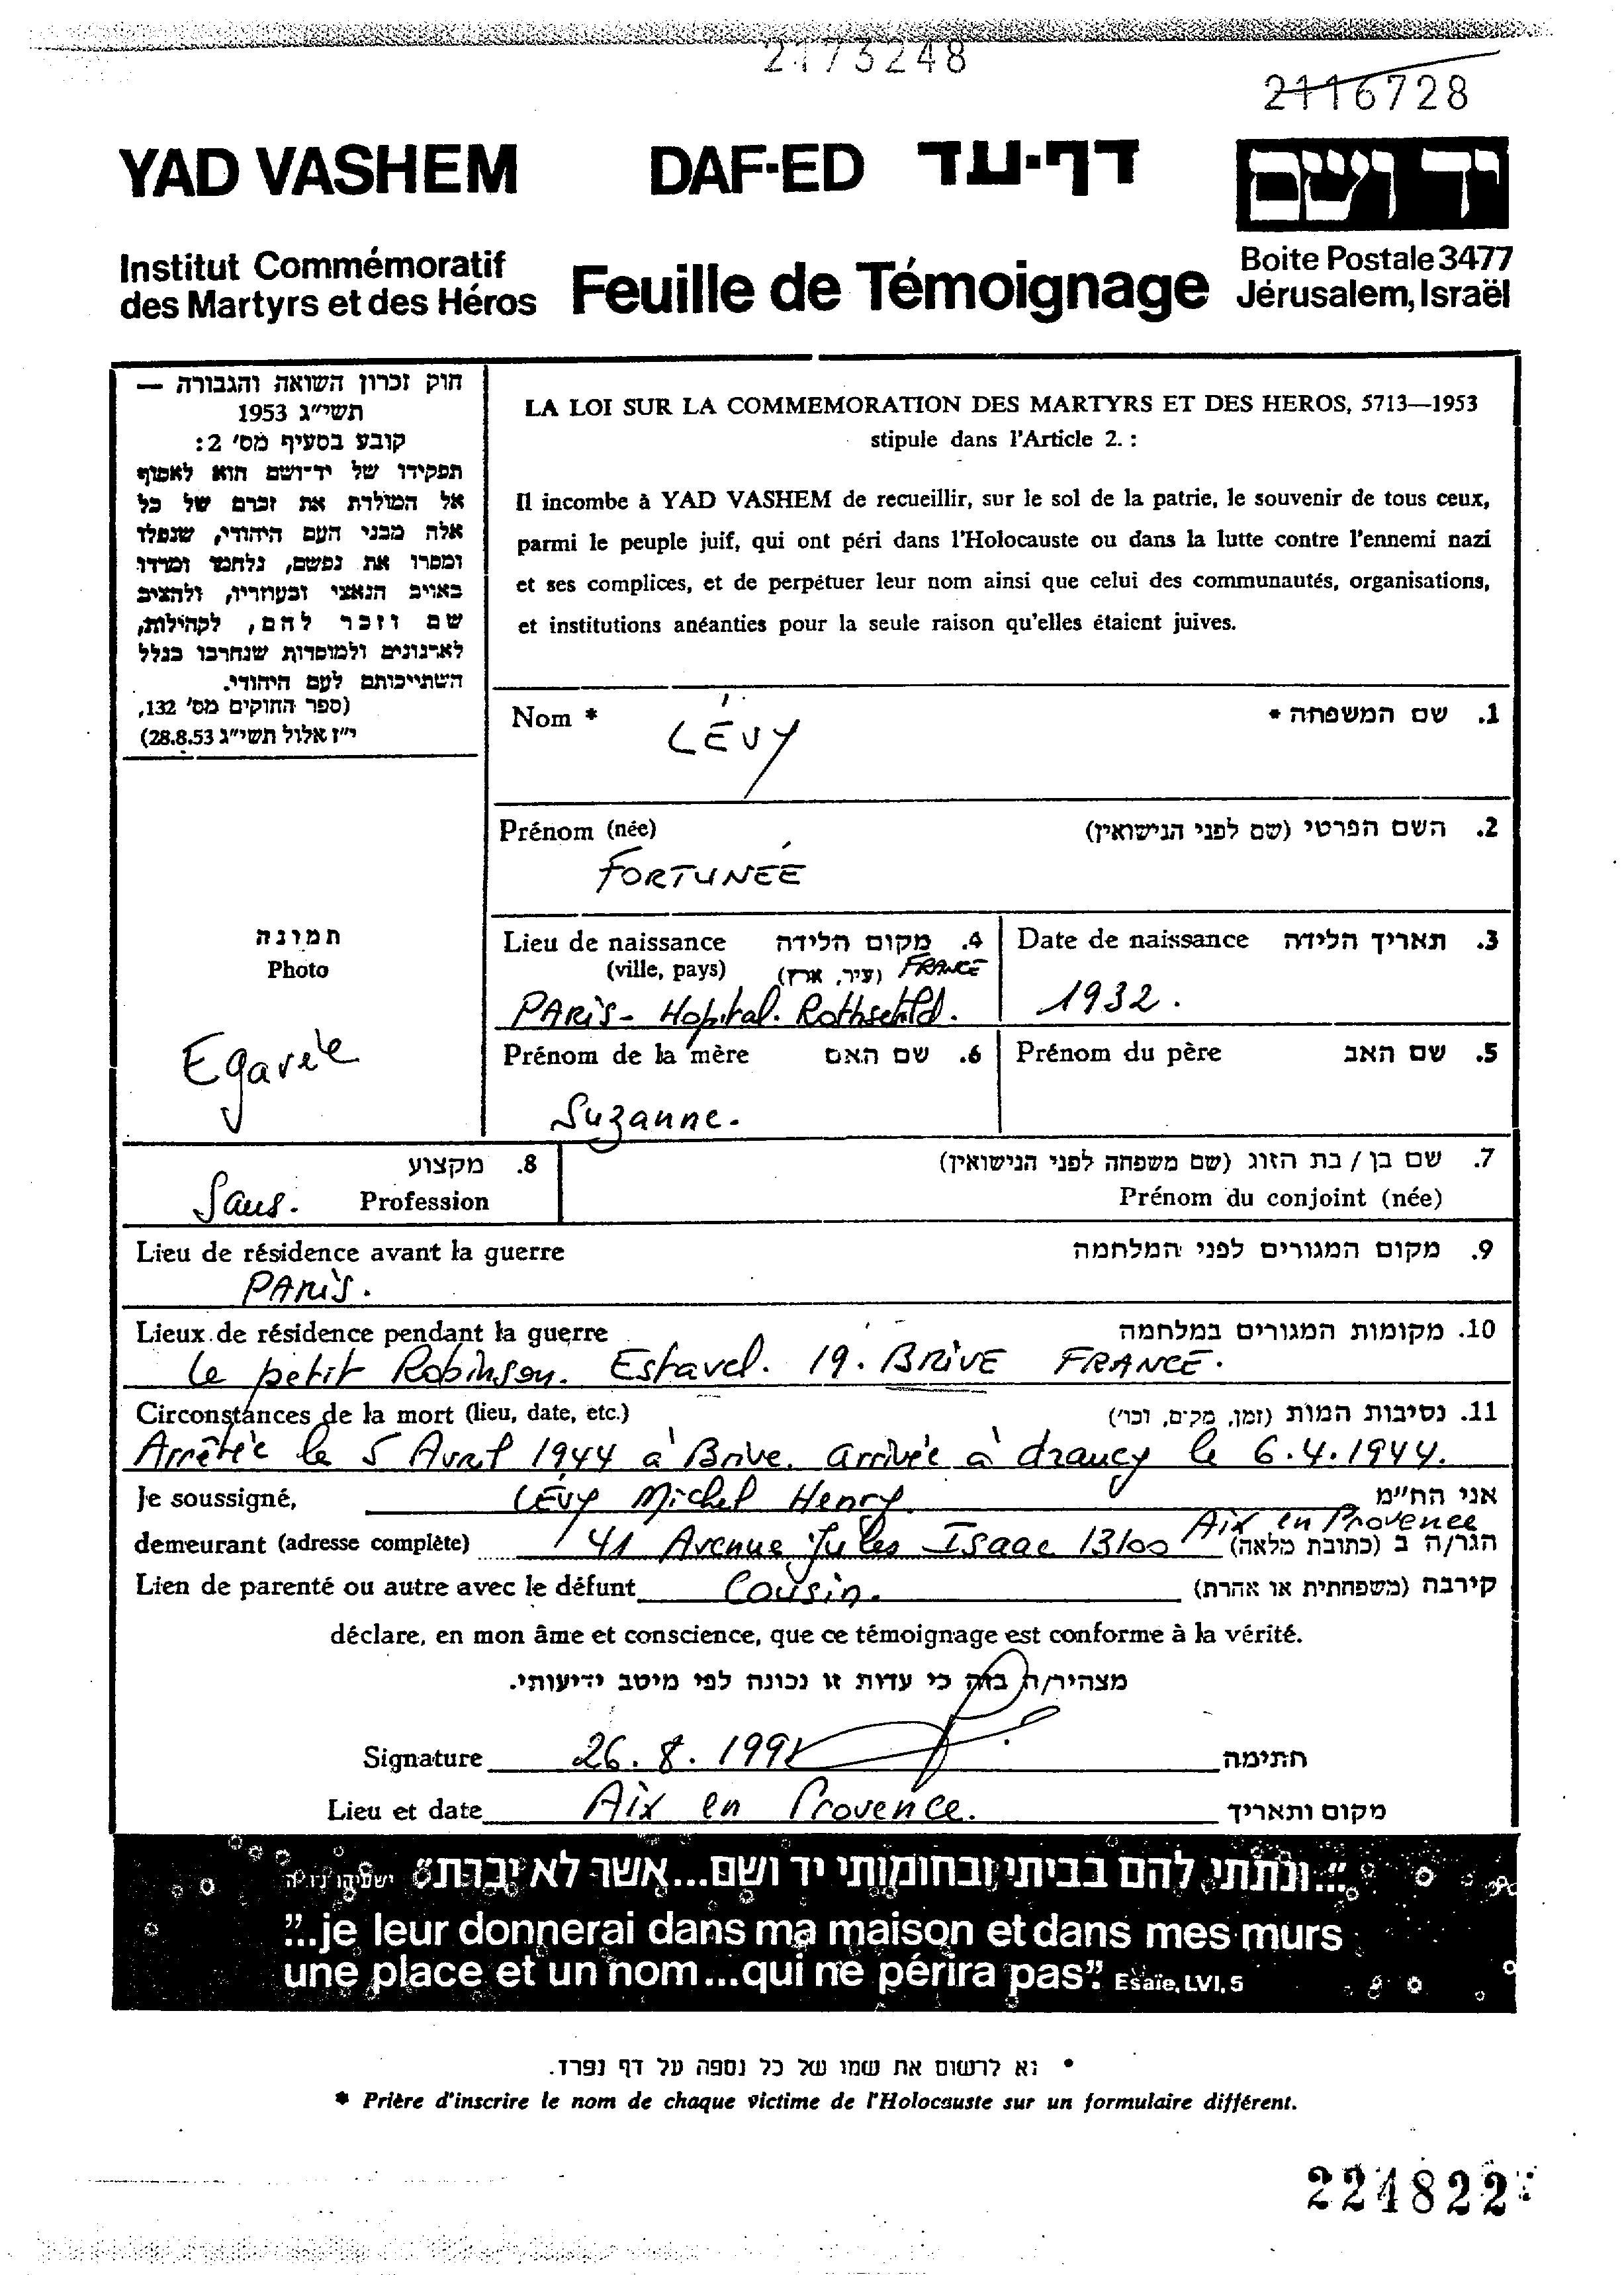 2173248
2116728
YAD VASHEM DAF-ED דף-עד יד ושם
Institut Commémoratif
des Martyrs et des Héros
Feuille de Témoignage
Boite Postale 3477
Jérusalem, Israël
חוק זכרון השואה והגבורה —
תשי"ג 1953
קובע בסעיף מס' 2:
תפקידו של יד-ושם הוא לאסוף
אל המולדת את זכרם של כל
אלה מבני העם היהודי, שנפלו
ומסרו את נפשם, נלחמו ומרדו
באויב הנאצי ובעוזריו, ולהציב
שם וזכר להם, לקהילות,
לארגונים ולמוסדות שנחרבו בגלל
השתייכותם לעם היהודי.
(ספר החוקים מס' 132,
י"ז אלול תשי"ג 28.8.53)
LA LOI SUR LA COMMEMORATION DES MARTYRS ET DES HEROS, 5713—1953
stipule dans l'Article 2. :
Il incombe à YAD VASHEM de recueillir, sur le sol de la patrie, le souvenir de tous ceux,
parmi le peuple juif, qui ont péri dans l'Holocauste ou dans la lutte contre l'ennemi nazi
et ses complices, et de perpétuer leur nom ainsi que celui des communautés, organisations,
et institutions anéanties pour la seule raison qu'elles étaient juives.
Nom * 1. שם המשפחה *
LÉVY
Prénom (née) 2. השם הפרטי (שם לפני הנישואין)
FORTUNÉE
תמונה
Photo
Egarée
Lieu de naissance 4. מקום הלידה
(ville, pays) (עיר, ארץ) FRANCE
PARIS - Hopital. Rothschild.
Date de naissance 3. תאריך הלידה
1932.
Prénom de la mère 6. שם האם
Suzanne.
Prénom du père 5. שם האב
8. מקצוע
Sans. Profession
7. שם בן / בת הזוג (שם משפחה לפני הנישואין)
Prénom du conjoint (née)
Lieu de résidence avant la guerre 9. מקום המגורים לפני המלחמה
PARIS.
Lieux de résidence pendant la guerre 10. מקומות המגורים במלחמה
Le petit Robinson. Estavel. 19. BRIVE FRANCE.
Circonstances de la mort (lieu, date, etc.) 11. נסיבות המות (זמן, מקום, וכו')
Arrêtée le 5 Avril 1944 à Brive. arrivée à drancy le 6.4.1944.
Je soussigné, LÉVY Michel Henry אני הח"מ
Aix en Provence
demeurant (adresse complète) 41 Avenue Jules Isaac 13100 הגר/ה ב (כתובת מלאה)
Lien de parenté ou autre avec le défunt Cousin. קירבה (משפחתית או אחרת)
déclare, en mon âme et conscience, que ce témoignage est conforme à la vérité.
מצהיר/ה בזה כי עדות זו נכונה לפי מיטב ידיעותי.
Signature 26.8.1991 חתימה
Lieu et date Aix en Provence. מקום ותאריך
"...ונתתי להם בביתי ובחומותי יד ושם...אשר לא יכרת" ישעיהו נו ה
"...je leur donnerai dans ma maison et dans mes murs
une place et un nom...qui ne périra pas". Esaïe, LVI, 5
* נא לרשום את שמו של כל נספה על דף נפרד.
* Prière d'inscrire le nom de chaque victime de l'Holocauste sur un formulaire différent.
224822